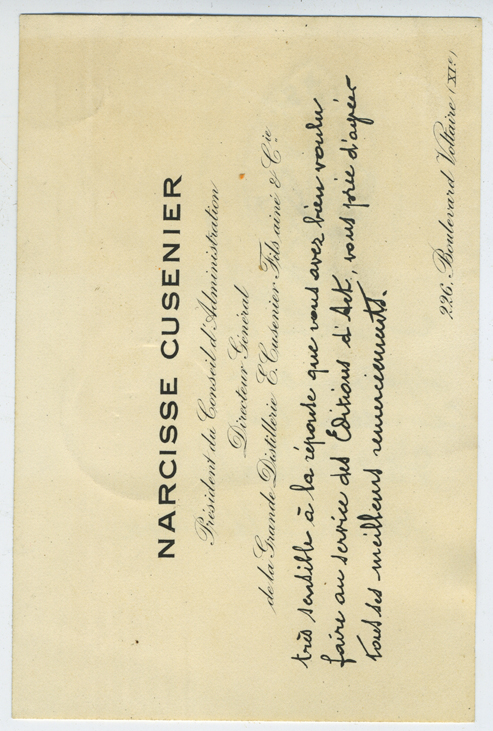 NARCISSE CUSENIER
Président du Conseil d'Administration
Directeur Général
de la Grande Distillerie E. Cusenier Fils ainé & Cie
très sensible à la réponse que vous avez bien voulu
faire au service des Editions d'Art, vous prie d'agréer
tous ses meilleurs remerciements.
226, Boulevard Voltaire (XIe)